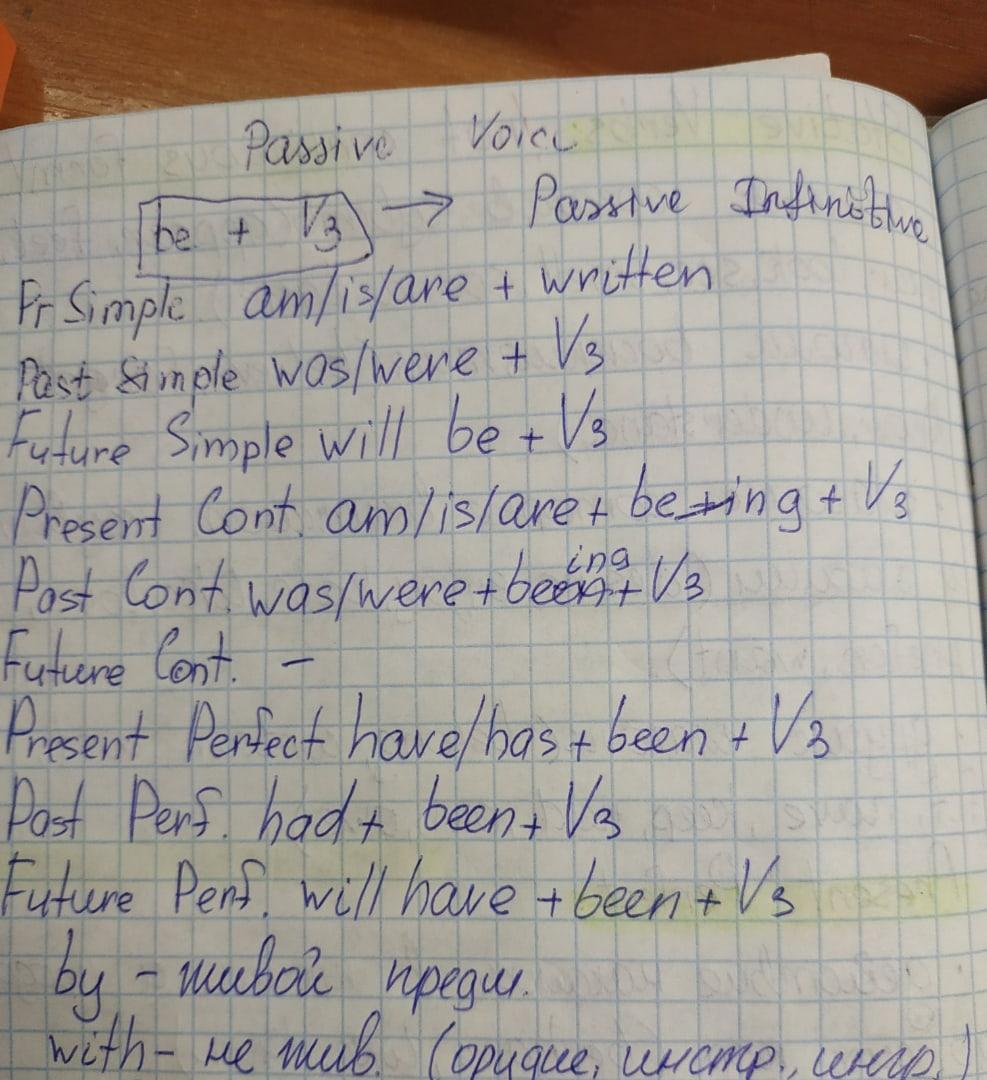 Passive Voice
be + V3 → Passive Infinitive
Pr Simple am/is/are + written
Past Simple was/were + V3
Future Simple will be + V3
Present Cont. am/is/are + being + V3
Past Cont. was/were + being + V3
Future Cont. –
Present Perfect have/has + been + V3
Past Perf. had + been + V3
Future Perf. will have + been + V3
by – живой предм.
with – не жив. (орудие, инстр., ингр.)